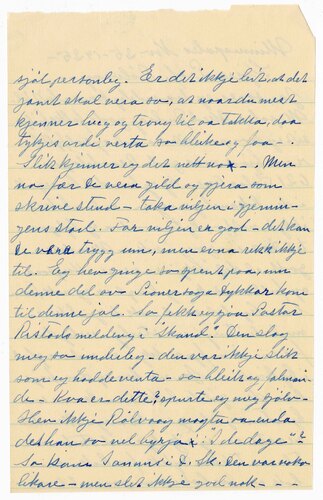 sjøl personleg. Er det ikkje leit, at det
jamt skal vera so, at naar du mest
kjenner hug og trong til aa takka, daa
tykjest ordi verta so bleike og faa - -.
Slik kjenner eg det nett no - -. Men
no fær De vera gild og gjera som
skrive stend - taka viljen i gjernin-
gens stad. For viljen er god - det kan
De vara trygg um, men evna rekk ikkje
til. Eg hev gjenge so spent paa, um
denne del av Pionersoga Dykkar kom
til denne jol. So fekk eg sjaa Pastor
Ristads melding i "Skand". Den slog
meg so underleg - den var ikkje slik
som eg hadde venta - so bleik og falman-
de - Kva er dette? spurte eg meg sjølv -
Hev ikkje Rølvaag magta aa enda
det han so vel byrja i "I de dage"?
So kom i D. Sk. Den var noko
likare - men slet ikkje god nok - - -.